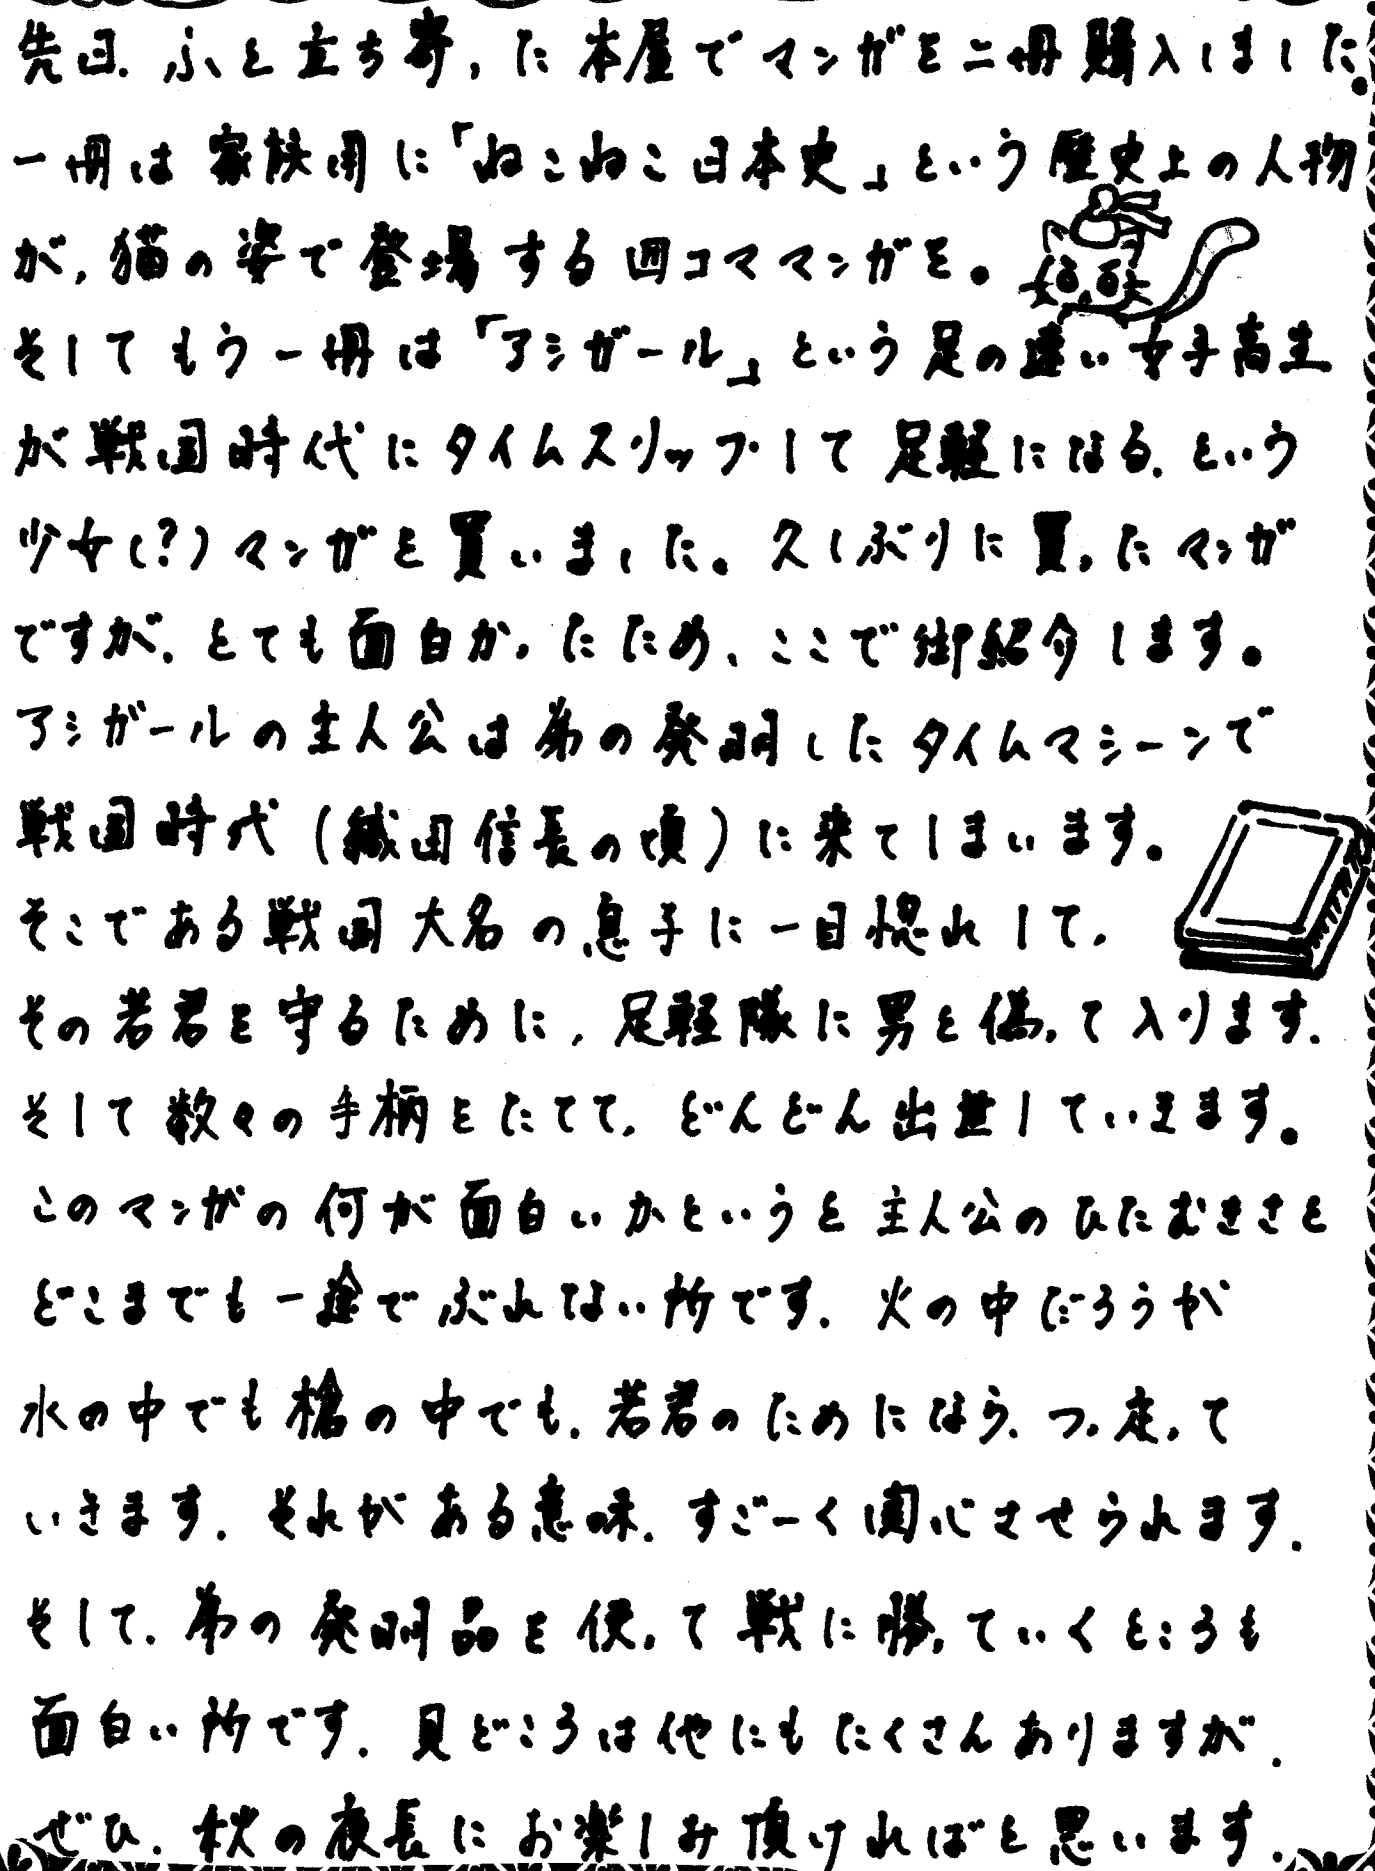 先日、ふと立ち寄った本屋でマンガを二冊購入しました。
一冊は家族用に「ねこねこ日本史」という歴史上の人物
が、猫の姿で登場する四コママンガを。
そしてもう一冊は「アシガール」という足の速い女子高生
が戦国時代にタイムスリップして足軽になる、という
少女(?)マンガを買いました。久しぶりに買ったマンガ
ですが、とても面白かったため、ここで御紹介します。
アシガールの主人公は弟の発明したタイムマシーンで
戦国時代(織田信長の頃)に来てしまいます。
そこである戦国大名の息子に一目惚れして、
その若君を守るために、足軽隊に男と偽って入ります。
そして数々の手柄をたてて、どんどん出世していきます。
このマンガの何が面白いかというと主人公のひたむきさと
どこまでも一途でぶれない所です。火の中だろうが
水の中でも槍の中でも、若君のためになら、つっ走って
いきます。それがある意味、すごーく関心させられます。
そして、弟の発明品を使って戦に勝っていくところも
面白い所です。見どころは他にもたくさんありますが、
ぜひ、秋の夜長にお楽しみ頂ければと思います。